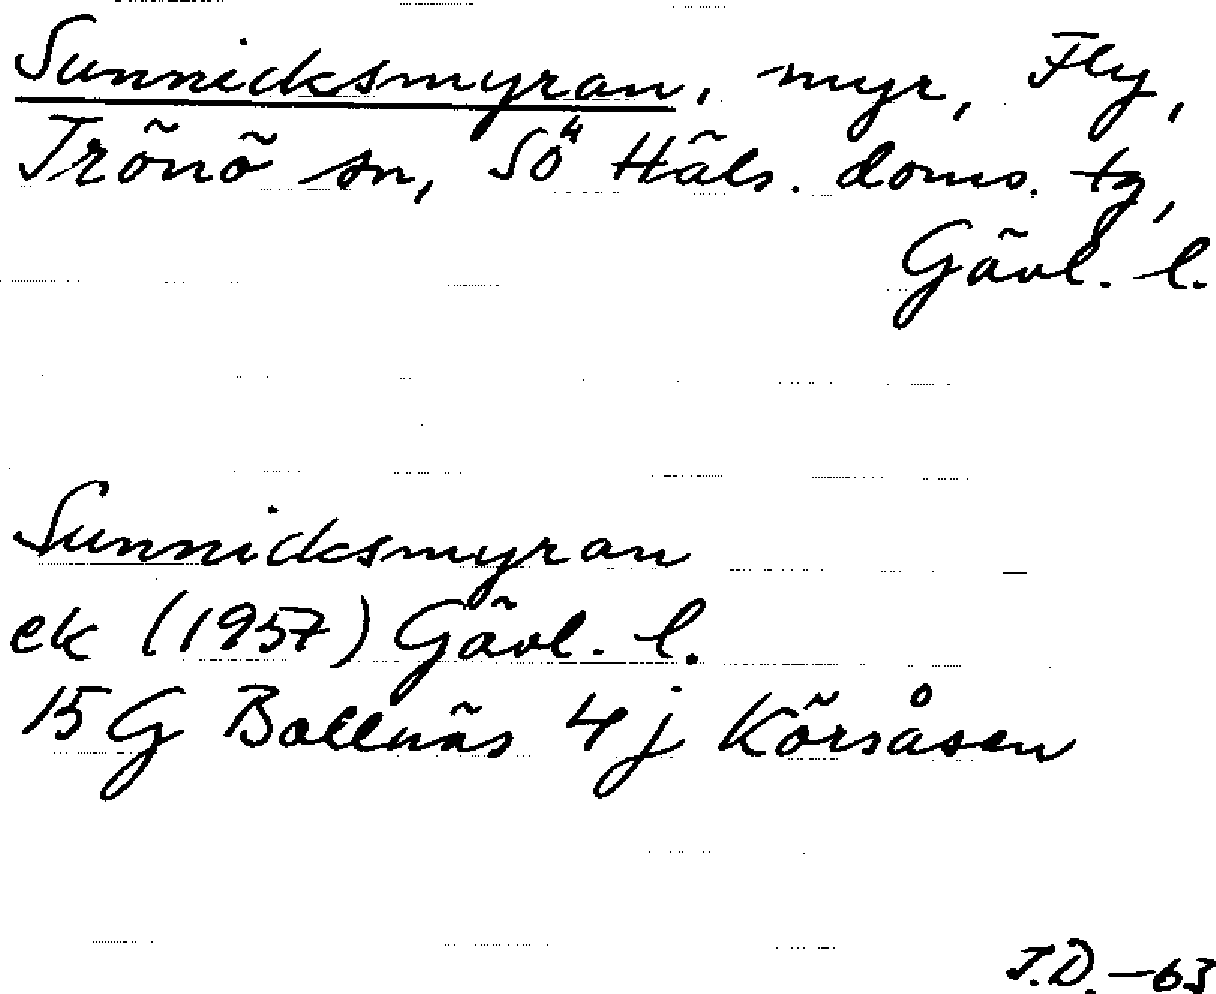 Sunnicksmyran, myr, Fly,
Trönö sn, Sö Häls. doms. tg,
Gävl. l.
Sunnicksmyran
ek (1957) Gävl. l.
15 G Bollnäs 4 j Körsåsen
J.D. -63